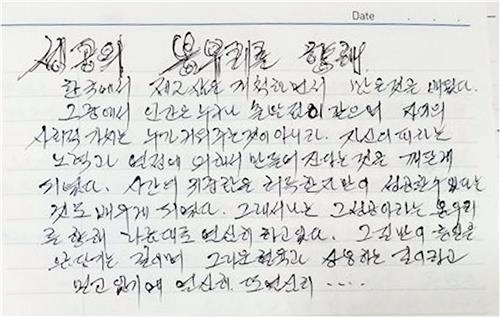 Date
성공의 봉우리를 향해
한국에서 새로 삶을 개척하면서 많은 것을 배웠다.
그중에서 인간은 누구나 출발점이 같으며 자기의
사회적 가치는 누가 키워주는 것이 아니라. 자신의 피타는
노력과 열정에 의해서 만들어 진다는 것을 깨닫게
되었다. 시간의 귀중함은 아는 한 자만이 성공할 수 있다는
것도 배우게 되었다. 그래서 나는 그 성공이라는 봉우리
를 향해 나름대로 열심히 하고 있다. 그 길만이 통일을
앞당기는 길이며 그리운 혈육과 상봉하는 길이라고
믿고 있기에 열심히 또 열심히 ....